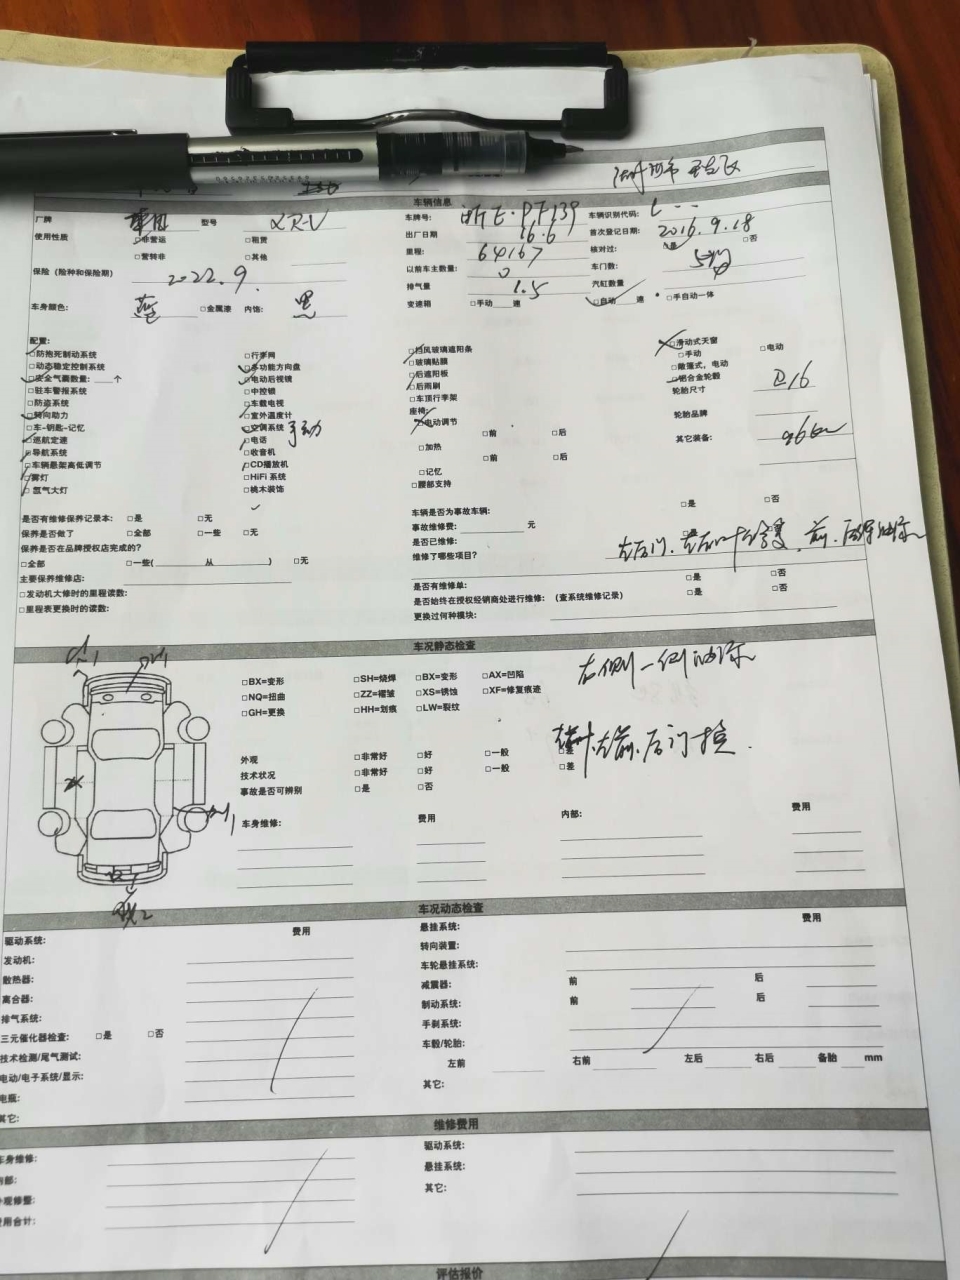 车辆信息
厂牌 型号 XRV 车牌号: 浙E·PF139 车辆识别代码: L
使用性质 □非营运 □租赁 出厂日期 16.6 首次登记日期: 2016.9.18
□营转非 □其他 里程: 64167 核对过: □是 □否
保险（险种和保险期） 2022.9. 以前车主数量: 0 车门数: 5
排气量 1.5 汽缸数量
车身颜色: 蓝 □金属漆 内饰: 黑 变速箱 □手动 速 □自动 速 □手自动一体
配置:
□防抱死制动系统 □行李网 □挡风玻璃遮阳条 □滑动式天窗
□动态稳定控制系统 □多功能方向盘 □玻璃贴膜 □手动 □电动
□安全气囊数量: 个 □电动后视镜 □后遮阳板 □敞篷式，电动
□驻车警报系统 □中控锁 □后雨刷 □铝合金轮毂
□防盗系统 □车载电视 □车顶行李架 轮胎尺寸 R16
□转向助力 □室外温度计 座椅:
□车-钥匙-记忆 □空调系统 手动 □电动调节 轮胎品牌
□巡航定速 □电话 □前 □后
□导航系统 □收音机 □加热 其它装备:
□车辆悬架高低调节 □CD播放机 □前 □后
□雾灯 □HiFi 系统 □记忆
□氙气大灯 □桃木装饰 □腰部支持
是否有维修保养记录本: □是 □无 车辆是否为事故车辆: □是 □否
保养是否做了 □全部 □一些 □无 事故维修费: 元
保养是否在品牌授权店完成的? 是否已维修: □是 □否
□全部 □一些( 从 ) □无 维修了哪些项目?
主要保养维修店: 是否有维修单: □是 □否
□发动机大修时的里程读数: 是否始终在授权经销商处进行维修: （查系统维修记录） □是 □否
□里程表更换时的读数: 更换过何种模块:
车况静态检查
右侧一侧油漆
□BX=变形 □SH=烧焊 □BX=变形 □AX=凹陷
□NQ=扭曲 □ZZ=褶皱 □XS=锈蚀 □XF=修复痕迹
□GH=更换 □HH=划痕 □LW=裂纹
外观 □非常好 □好 □一般 □差
技术状况 □非常好 □好 □一般 □差
事故是否可辨别 □是 □否
车身维修: 费用 内部: 费用
车况动态检查
驱动系统: 费用 悬挂系统: 费用
发动机: 转向装置:
散热器: 车轮悬挂系统:
离合器: 减震器: 前 后
排气系统: 制动系统: 前 后
三元催化器检查: □是 □否 手刹系统:
技术检测/尾气测试: 车毂/轮胎:
电动/电子系统/显示: 左前 右前 左后 右后 备胎 mm
电瓶: 其它:
其它:
维修费用
车身维修: 驱动系统:
内部: 悬挂系统:
外观修整: 其它:
费用合计:
评估报价